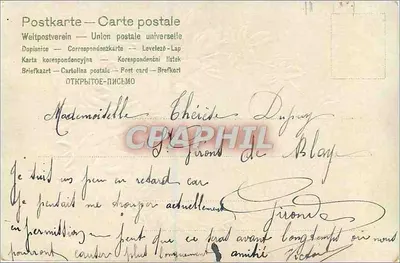 Postkarte — Carte postale
Weltpostverein — Union postale universelle
Dopisnice — Correspondenzkarte — Levelező-Lap
Karta korespondencyjna — Korespondenční lístek
Briefkaart — Cartolina postale — Post card — Brefkort
ОТКРЫТОЕ-ПИСЬМО
Mademoiselle Thérèse Dupuy
St Giront de Blaye
CPAPHIL
Gironde
Je suit us peu en retard car
Je pensait me trouver actuellement
en permission peut que ce serat avant longtemps où nous
pourront causer plus longuement amitié Victor